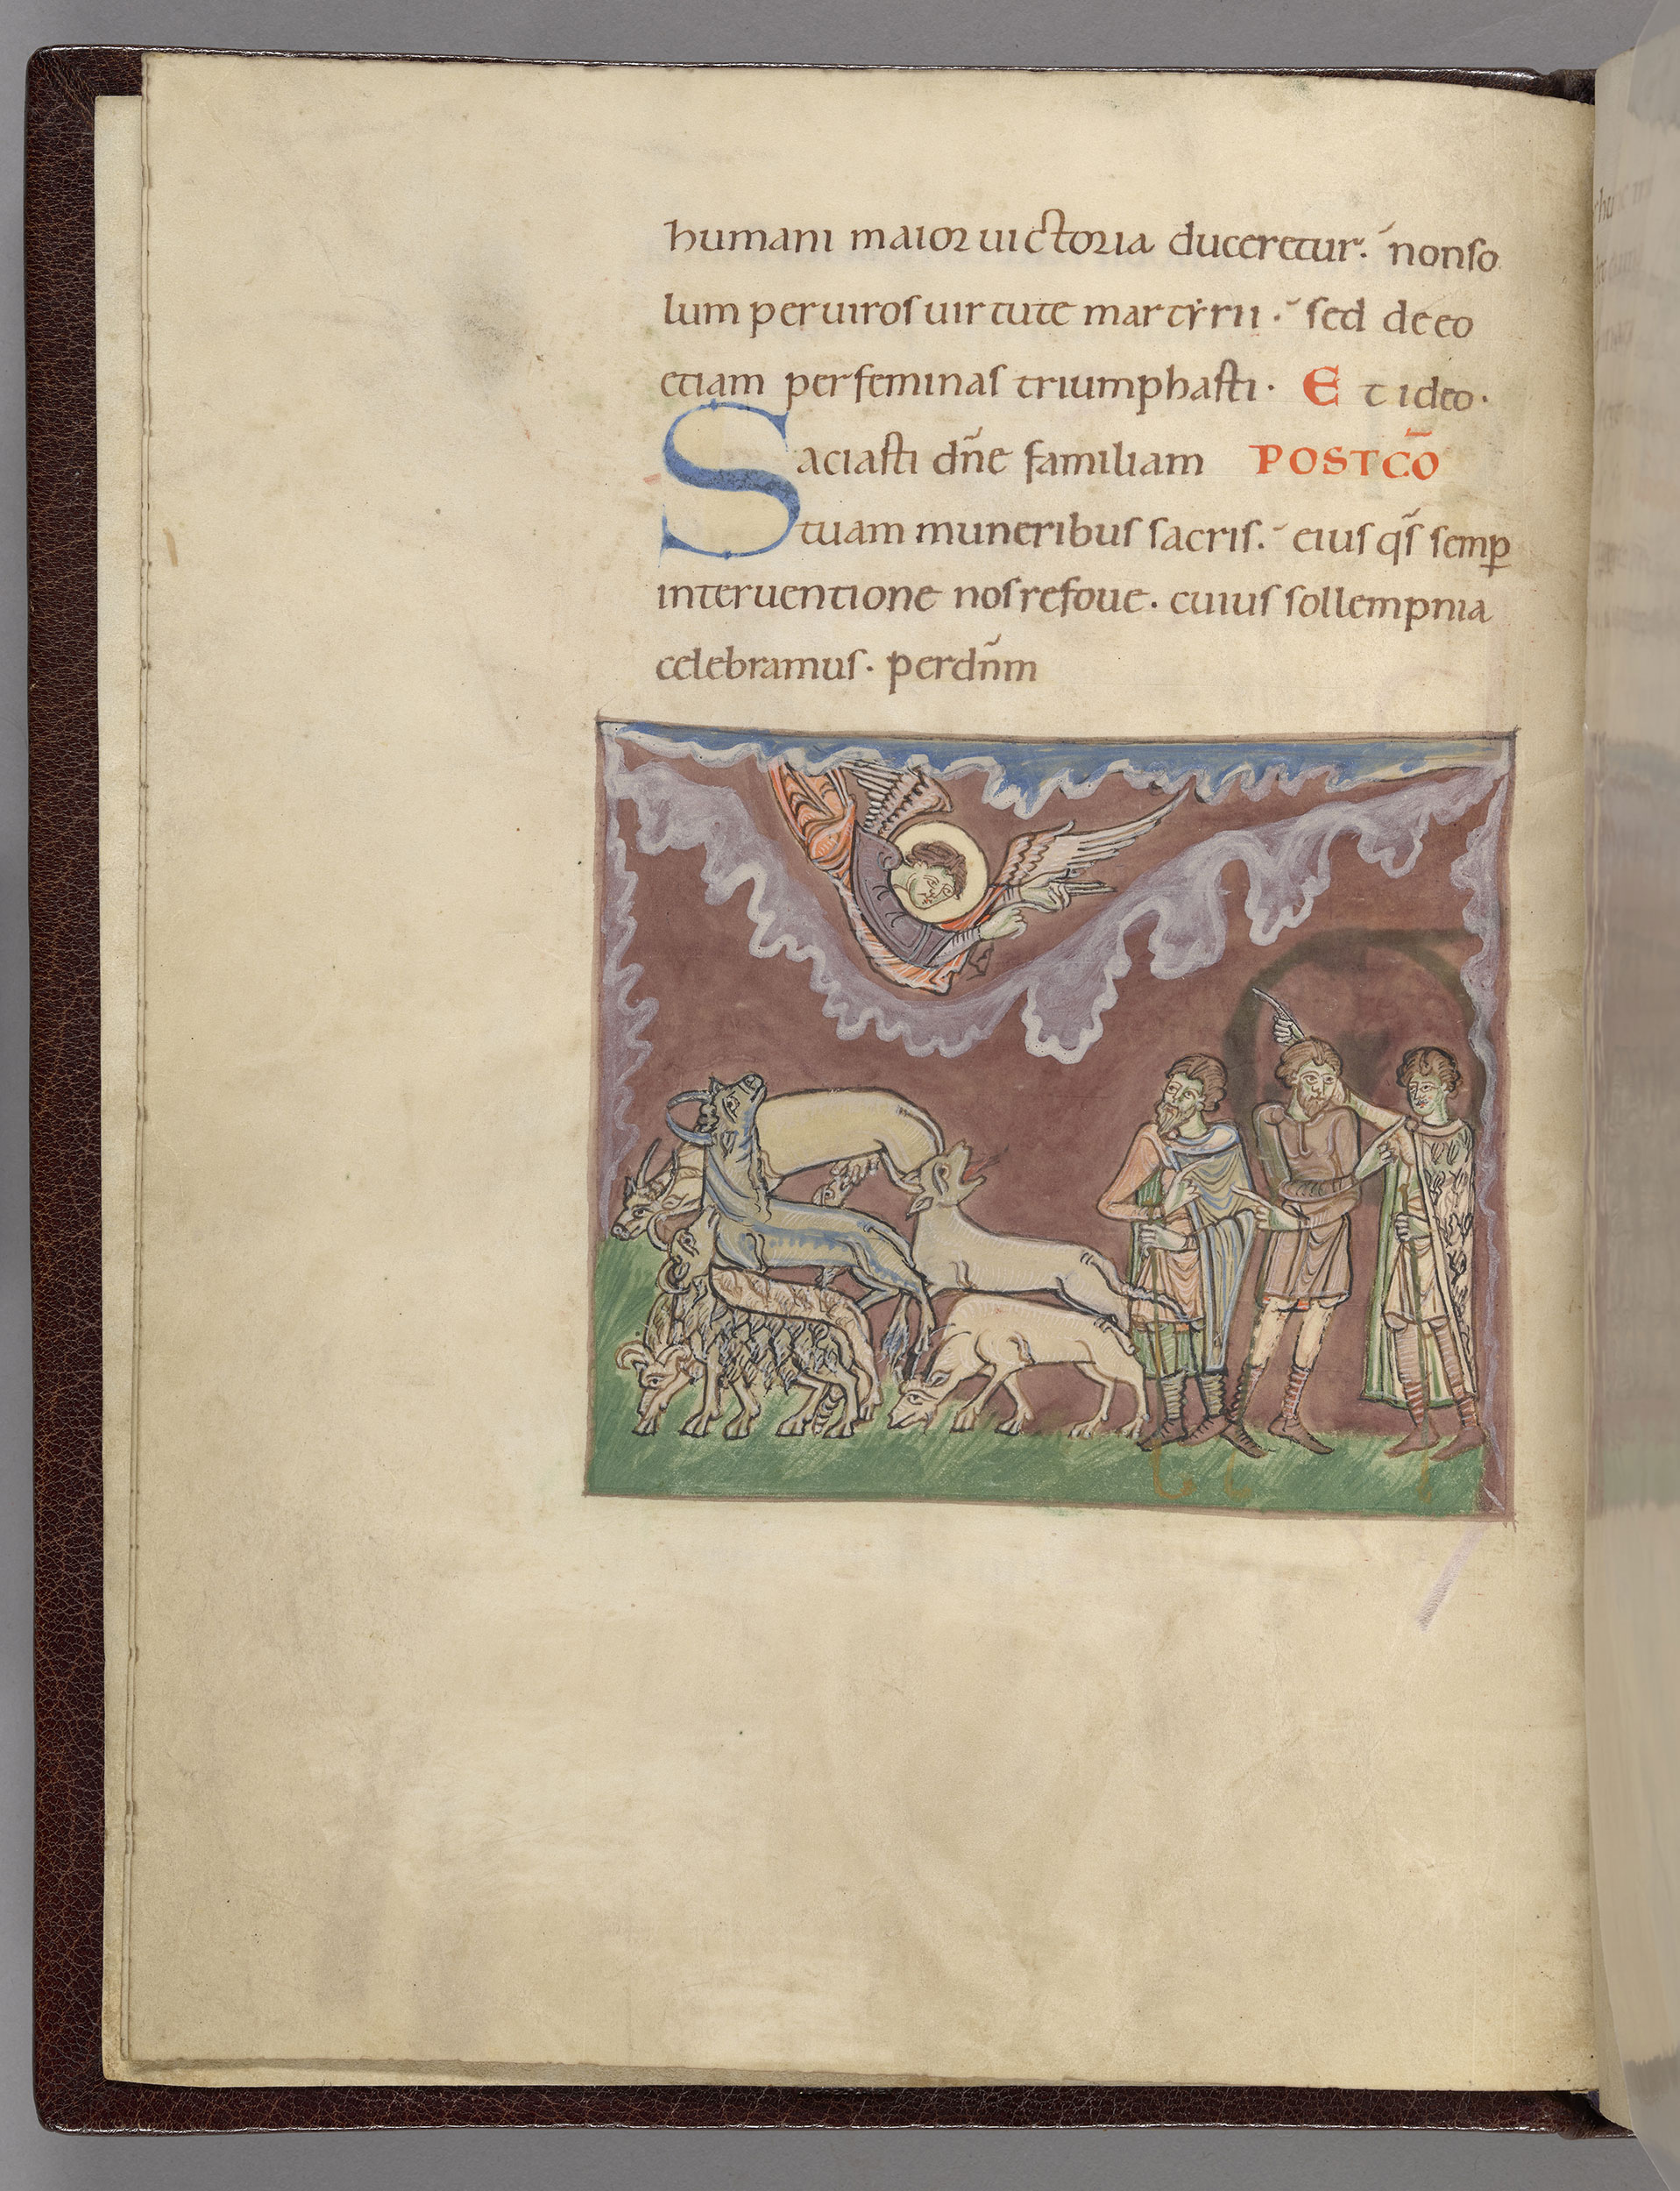 humani maior uictoria duceretur. nonso
lum per uiros uirtute martẏrii. sed de eo
etiam per feminas triumphasti. Et ideo.
Saciasti dn̄e familiam POSTCŌ
tuam muneribus sacris. eius qs̄ semꝑ
interuentione nos refoue. cuius sollempnia
celebramus. per dn̄m